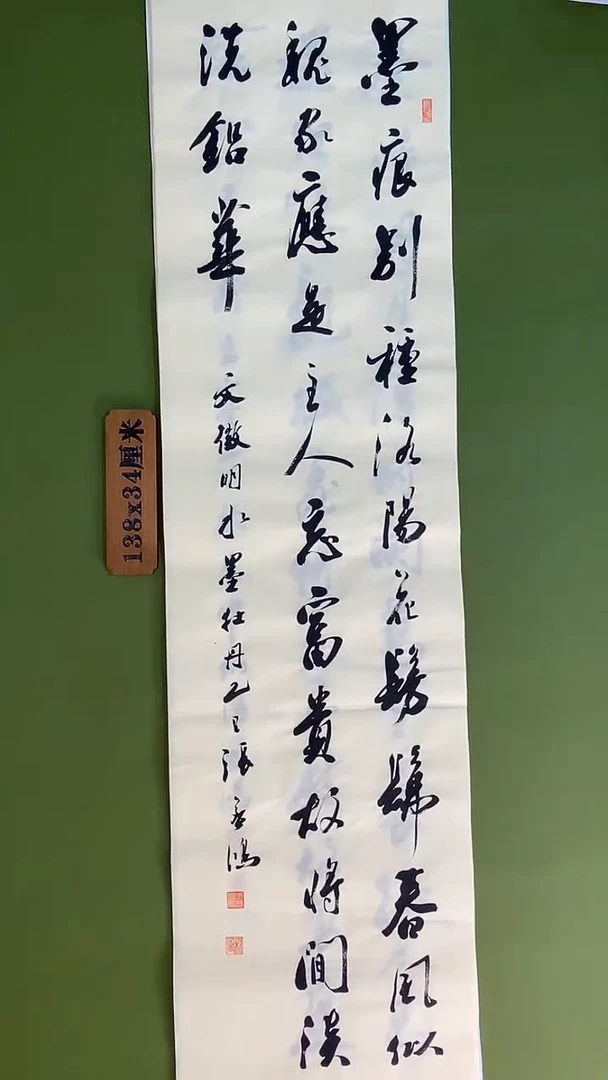 墨痕別種洛陽花髣髴春風似
魏家應是主人忘富貴故將閒淡
洗鉛華
文徵明水墨牡丹乙巳張鴻
138x34厘米